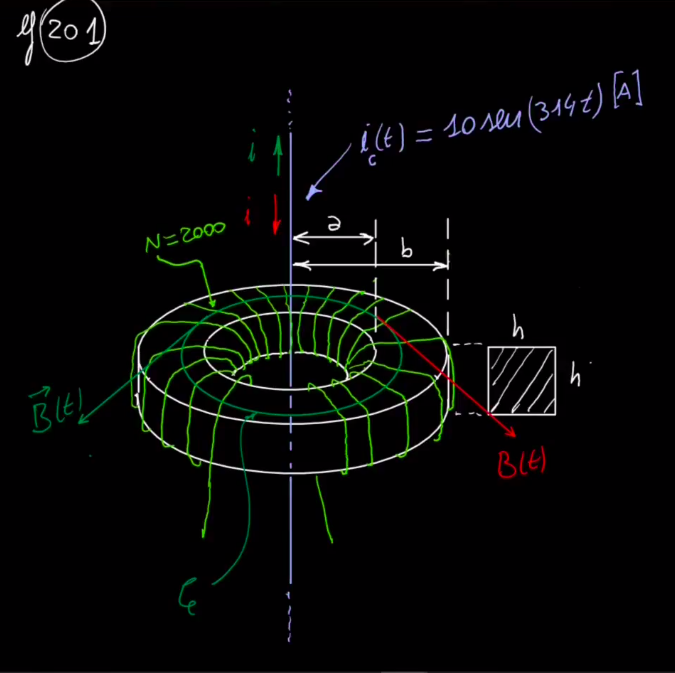 ej 201
i_c(t) = 10 sen(314t) [A]
i
i
a
N=2000
b
h
h
B(t)
B(t)
C